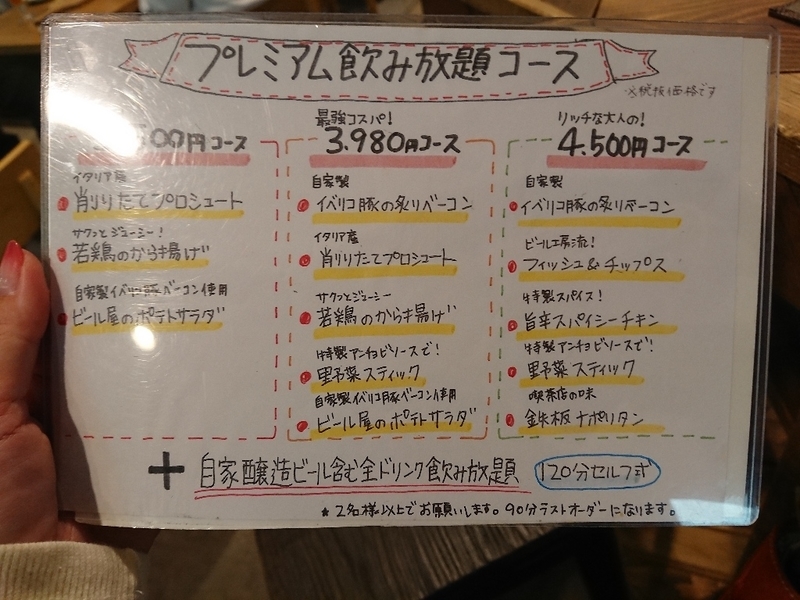 プレミアム飲み放題コース
※税抜価格です
500円コース
イタリア産
削りたてプロシュート
サクッとジューシー！
若鶏のから揚げ
自家製イベリコ豚ベーコン使用
ビール屋のポテトサラダ
最強コスパ！
3.980円コース
自家製
イベリコ豚の炙りベーコン
イタリア産
削りたてプロシュート
サクッとジューシー
若鶏のから揚げ
特製アンチョビソースで！
野菜スティック
自家製イベリコ豚ベーコン使用
ビール屋のポテトサラダ
リッチな大人の！
4.500円コース
自家製
イベリコ豚の炙りベーコン
ビール工房流！
フィッシュ&チップス
特製スパイス！
旨辛スパイシーチキン
特製アンチョビソースで！
野菜スティック
喫茶店の味
鉄板ナポリタン
+ 自家醸造ビール含む全ドリンク飲み放題 120分セルフ式
★2名様以上でお願いします。90分ラストオーダーになります。